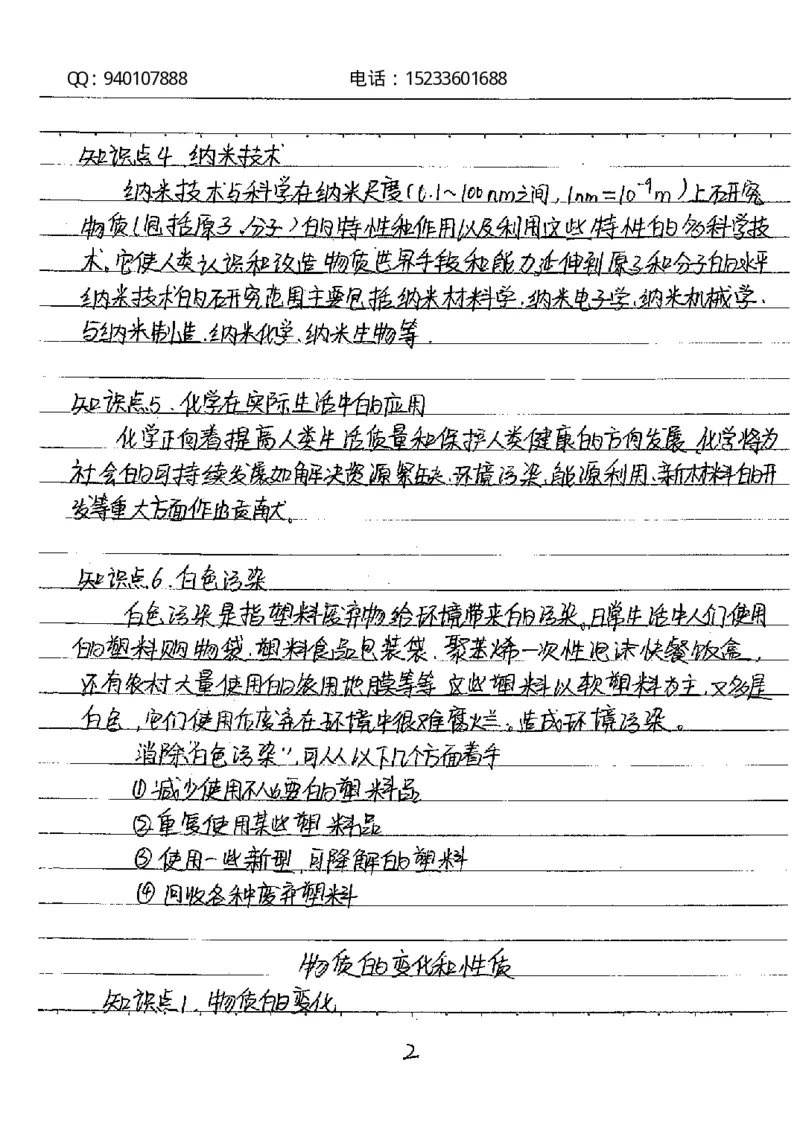 QQ：940107888 电话：15233601688
知识点4 纳米技术
纳米技术与科学在纳米尺度(0.1~100nm之间，1nm=10⁻⁹m)上研究
物质(包括原子、分子)的特性和作用以及利用这些特性的多科学技
术。它使人类认识和改造物质世界手段和能力延伸到原子和分子的水平
纳米技术的研究范围主要包括纳米材料学、纳米电子学、纳米机械学、
与纳米制造、纳米化学、纳米生物等.
知识点5、化学在实际生活中的应用
化学正向着提高人类生活质量和保护人类健康的方向发展、化学将为
社会的可持续发展如解决资源紧缺、环境污染、能源利用、新材料的开
发等重大方面作出贡献。
知识点6、白色污染
白色污染是指塑料废弃物给环境带来的污染。日常生活中人们使用
的塑料购物袋、塑料食品包装袋、聚苯烯一次性泡沫快餐饭盒，
还有农村大量使用的农用地膜等等 这些塑料以软塑料为主，又多是
白色，它们使用后废弃在环境中很难腐烂。造成环境污染。
消除"白色污染"，可从以下几个方面着手
①减少使用不必要的塑料品
②重复使用某些塑料品
③使用一些新型、可降解的塑料
④回收各种废弃塑料
物质的变化和性质
知识点1、物质的变化
2